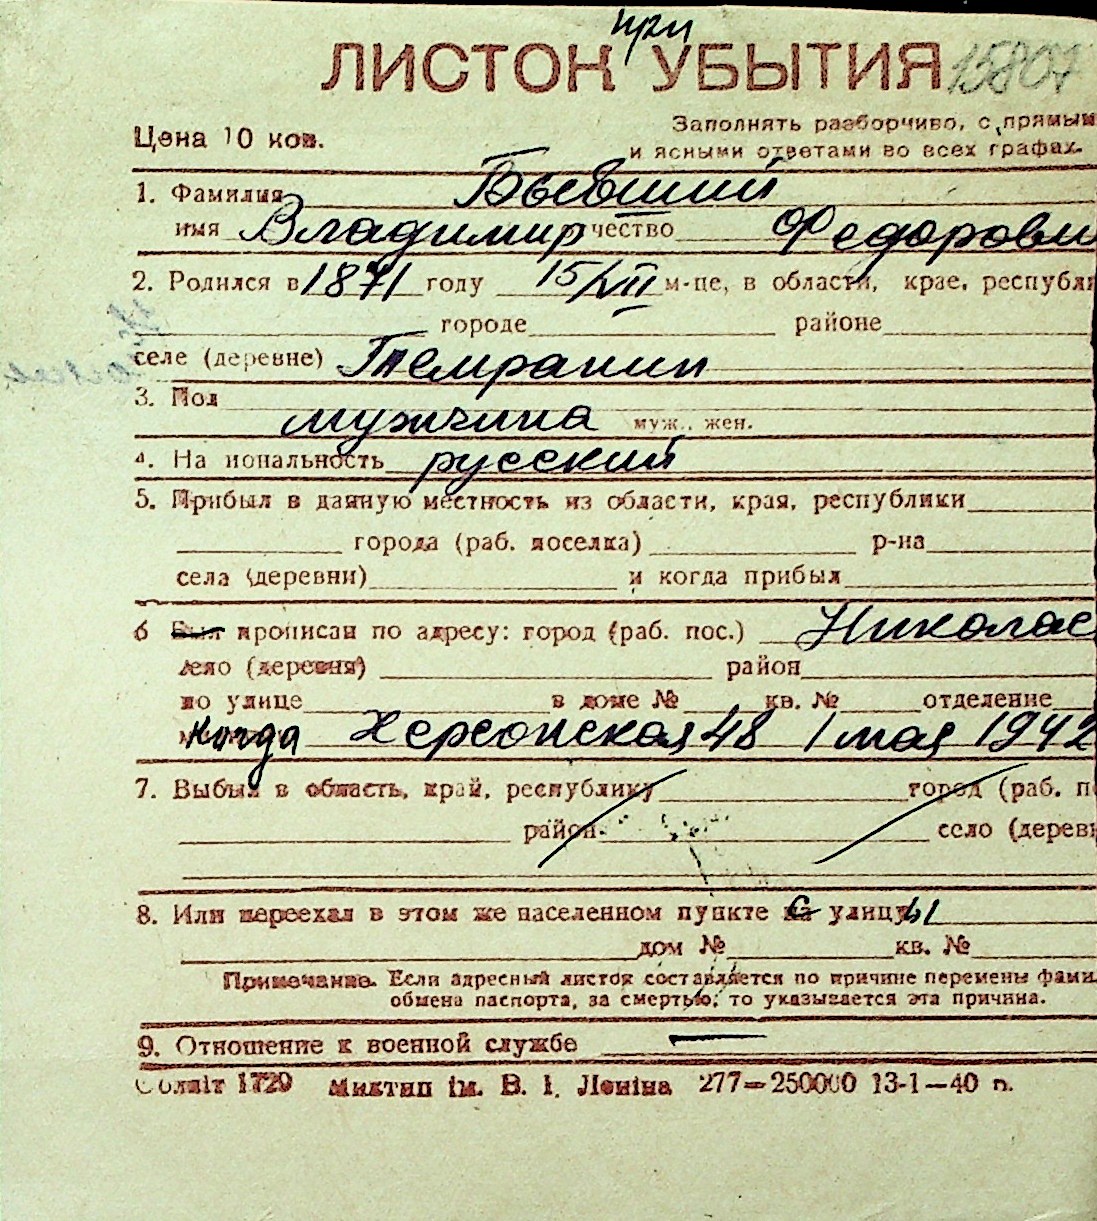 при
ЛИСТОК УБЫТИЯ 15807
Цена 10 коп.
Заполнять разборчиво, с прямым
и ясными ответами во всех графах.
1. Фамилия Бывший
имя Владимир чество Федорови
2. Родился в 1871 году 15/VII м-це, в области, крае, республи
городе районе
селе (деревне)
3. Пол мужчина муж., жен.
4. На иональность русский
5. Прибыл в данную местность из области, края, республики
города (раб. поселка) р-на
села (деревни) и когда прибыл
6 Был прописан по адресу: город (раб. пос.) Николае
село (деревня) район
по улице в доме № кв. № отделение
когда Херсонская 48 1 мая 1942
7. Выбыл в область, край, республику город (раб. по
район село (деревн
8. Или переехал в этом же населенном пункте на с улицу ы
дом № кв. №
Примечание. Если адресный листок составляется по причине перемены фами
обмена паспорта, за смертью, то указывается эта причина.
9. Отношение к военной службе —
Облліт 1720 Миктип ім. В. І. Леніна 277—250000 13-1—40 р.